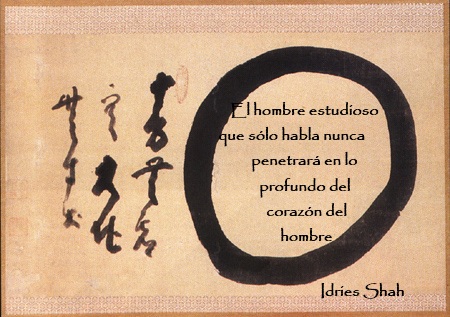 十方無虚
空大地
無寸土
El hombre estudioso
que sólo habla nunca
penetrará en lo
profundo del
corazón del
hombre
Idries Shah